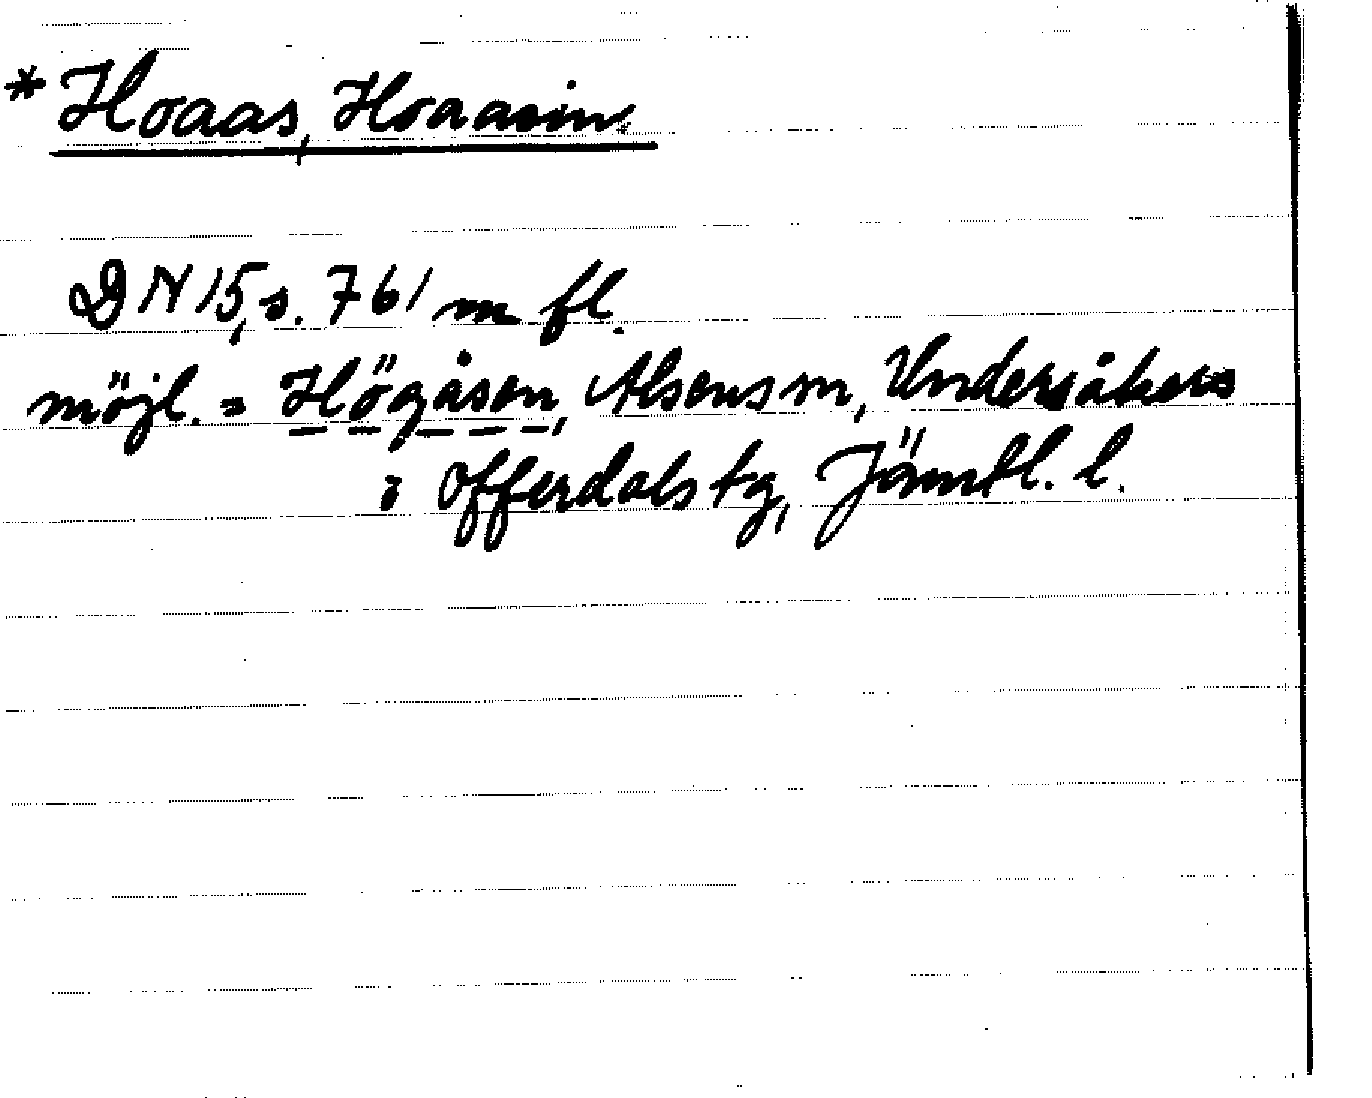 * Hoaas, Hoaasin
DN 15, s. 761 m fl.
möjl. = Högåsen, Alsens sn, Undersåkers
o Offerdals tg, Jämtl. l.